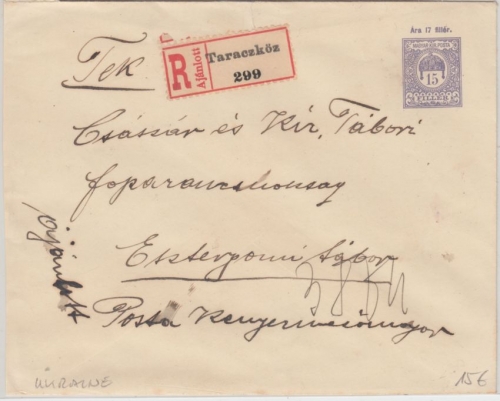 Ára 17 fillér.
MAGYAR KIR. POSTA
15
Tek.
R
Ajánlott
Taraczköz
299
Császár és Kir. Tábori
főparancsnokság
Esztergomi tábor
Posta Kenyermező
Ajánlott
UKRAINE
15€